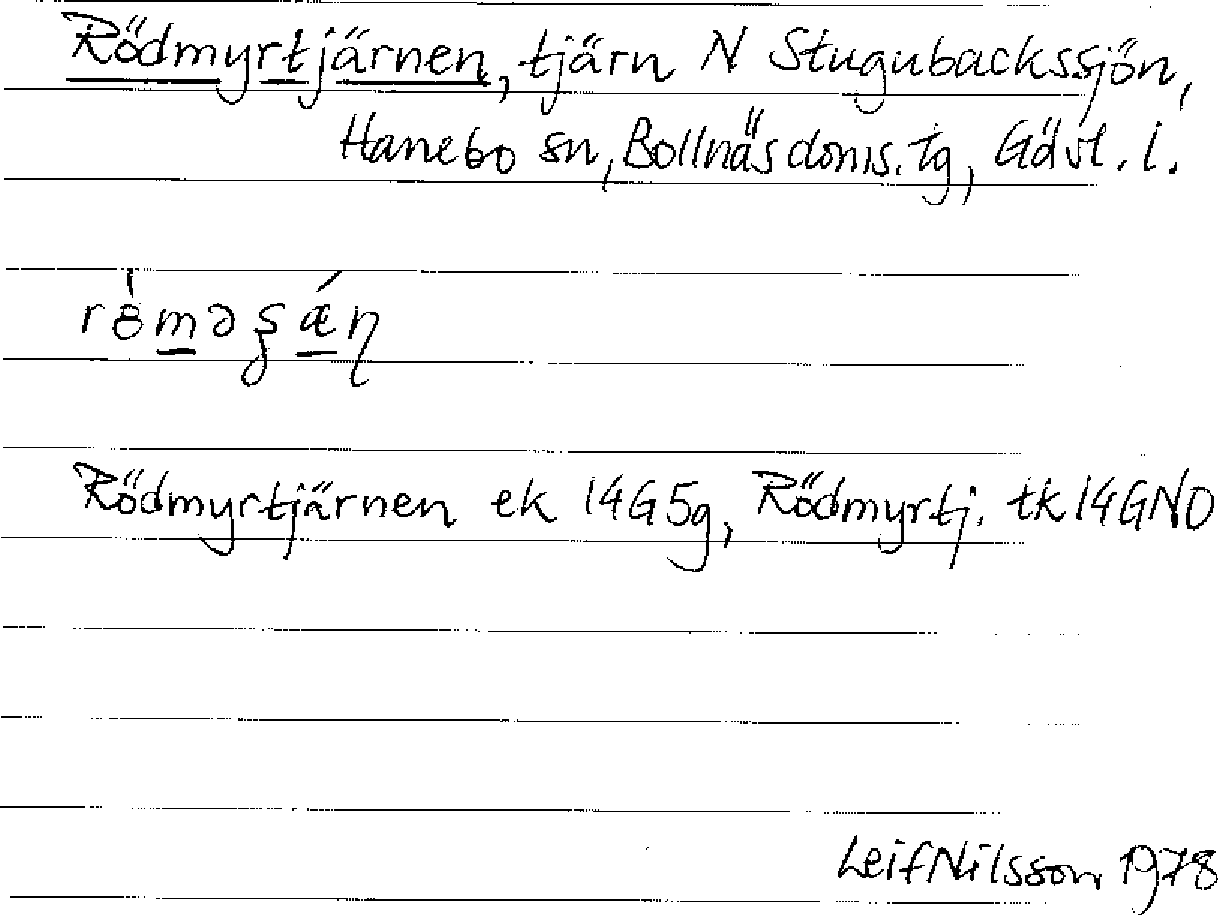 Rödmyrtjärnen, tjärn N Stugubackssjön,
Hanebo sn, Bollnäs doms. tg, Gävl. l.
rɵ̀məʂǽɳ
Rödmyrtjärnen ek 14G5g, Rödmyrtj. tk 14GNO
Leif Nilsson 1978